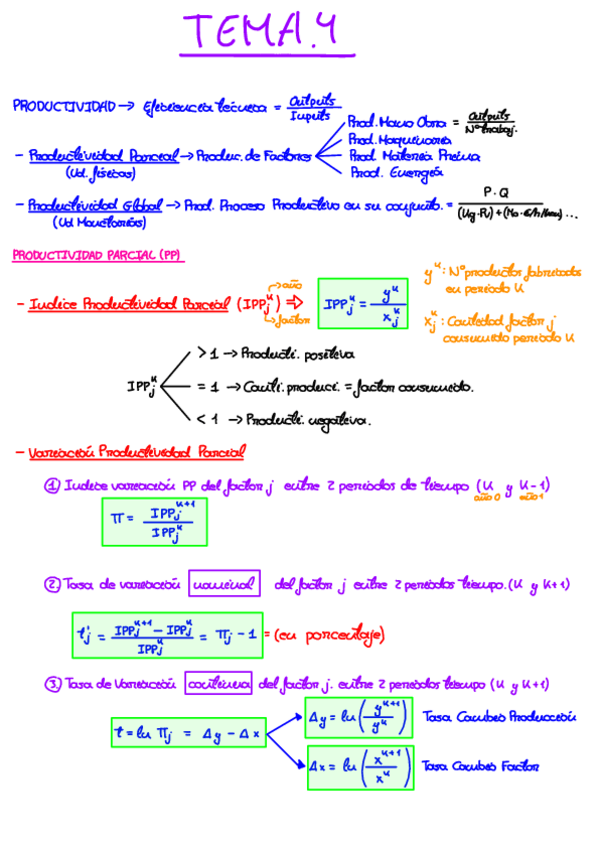 TEMA.4
PRODUCTIVIDAD → Eficiencia técnica = Outputs / Inputs
- Productividad Parcial → Produc. de Factores
(Ud. físicas)
Prod. Mano Obra = Outputs / Nº trabaj.
Prod. Maquinaria
Prod. Materia Prima
Prod. Energía
- Productividad Global → Prod. Proceso Productivo en su conjunto. = P·Q / (Ug·Pu) + (Mo·€/h/hom) ...
(Ud Monetarias)
PRODUCTIVIDAD PARCIAL (PP)
- Indice Productividad Parcial (IPPjᵏ) ⇒ IPPjᵏ = yᵏ / xjᵏ
→ año
→ factor
yᵏ: Nº productos fabricados
en periodo K
xjᵏ: Cantidad factor j
consumido periodo K
IPPjᵏ
> 1 → Producti. positiva
= 1 → Canti. produci. = factor consumido.
< 1 → Producti. negativa.
- Variación Productividad Parcial
① Indice variación PP del factor j entre 2 periodos de tiempo (K y K-1)
año 0 año 1
π = IPPjᵏ⁺¹ / IPPjᵏ
② Tasa de variación nominal del factor j entre 2 periodos tiempo. (K y K+1)
t'j = IPPjᵏ⁺¹ - IPPjᵏ / IPPjᵏ = πj - 1 = (en porcentaje)
③ Tasa de Variación continua del factor j. entre 2 periodos tiempo (K y K+1)
t = ln πj = Δy - Δx
Δy = ln (yᵏ⁺¹ / yᵏ) Tasa Cambio Producción
Δx = ln (xᵏ⁺¹ / xᵏ) Tasa Cambio Factor